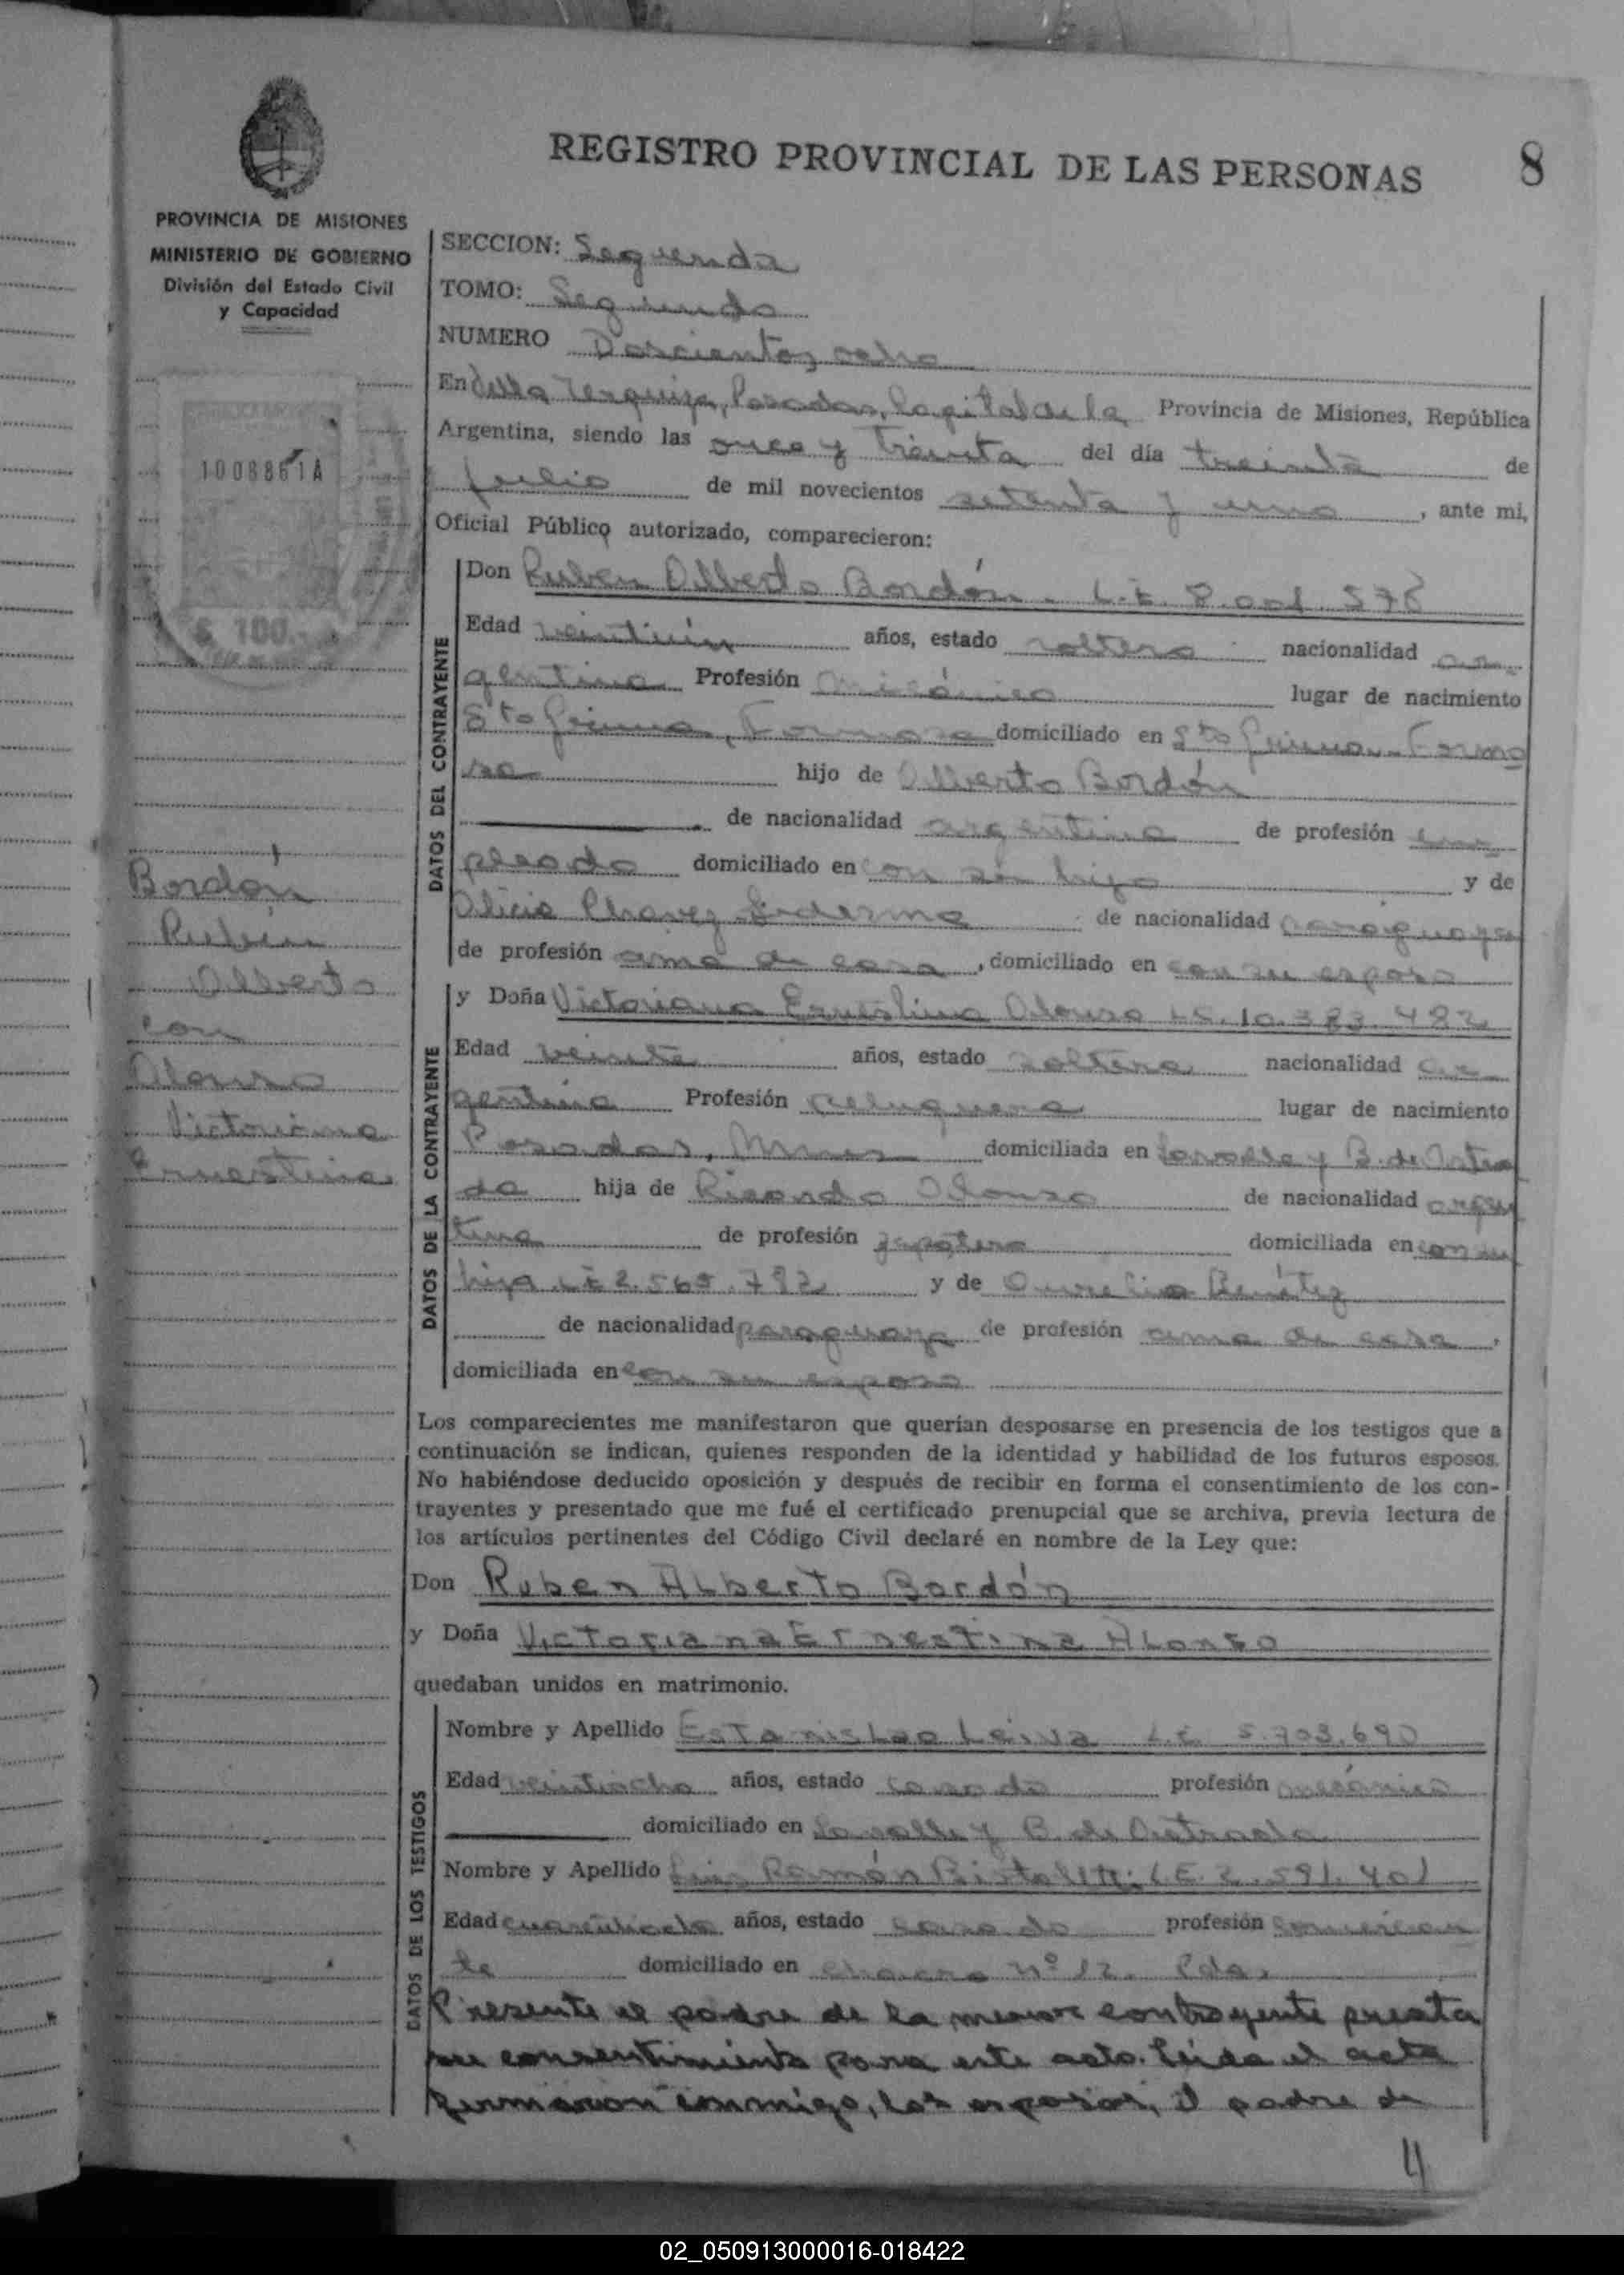 REGISTRO PROVINCIAL DE LAS PERSONAS
8
PROVINCIA DE MISIONES
MINISTERIO DE GOBIERNO
División del Estado Civil
y Capacidad
1008861A
$ 100.-
SECCION: Segunda
TOMO: Segundo
NUMERO Doscientos ocho
En Villa Urquiza, Posadas, Capital de la Provincia de Misiones, República
Argentina, siendo las once y treinta del día treinta de
julio de mil novecientos setenta y uno, ante mi,
Oficial Público autorizado, comparecieron:
DATOS DEL CONTRAYENTE
Don Ruben Alberto Bordón. L.E. 8.001.578
Edad veintiún años, estado soltero nacionalidad ar-
gentina Profesión mecánico lugar de nacimiento
Formosa domiciliado en Formo
sa hijo de Alberto Bordón
de nacionalidad argentina de profesión em-
pleado domiciliado en con su hijo y de
Alicia Chavez Ledesma de nacionalidad paraguaya
de profesión ama de casa, domiciliado en con su esposo
DATOS DE LA CONTRAYENTE
y Doña Victoriana Ernestina Alonso L.C. 10.383.482
Edad veinte años, estado soltera nacionalidad ar-
gentina Profesión peluquera lugar de nacimiento
Posadas, Mnes domiciliada en Lavalle y B. de Astra
da hija de Ricardo Alonso de nacionalidad argen
tina de profesión zapatero domiciliada en con su
hija L.E 2.565.792 y de Aurelia Benítez
de nacionalidad paraguaya de profesión ama de casa,
domiciliada en con su esposo
Bordón
Rubén
Alberto
con
Alonso
Victoriana
Ernestina
Los comparecientes me manifestaron que querían desposarse en presencia de los testigos que a
continuación se indican, quienes responden de la identidad y habilidad de los futuros esposos.
No habiéndose deducido oposición y después de recibir en forma el consentimiento de los con-
trayentes y presentado que me fué el certificado prenupcial que se archiva, previa lectura de
los artículos pertinentes del Código Civil declaré en nombre de la Ley que:
Don Ruben Alberto Bordón
y Doña Victoriana Ernestina Alonso
quedaban unidos en matrimonio.
DATOS DE LOS TESTIGOS
Nombre y Apellido Estanislao Leiva L.E 5.703.690
Edad veintiocho años, estado casado profesión mecánico
domiciliado en Lavalle y B. de Astrada
Nombre y Apellido Luis Ramón L.E. 2.591.401
Edad años, estado casado profesión comercian
te domiciliado en chacra Nº 12. Pdas.
Presente el padre de la menor contrayente presta
su consentimiento para este acto. Leida el acta
firmaron conmigo, los esposos, el padre de
4
02_050913000016-018422